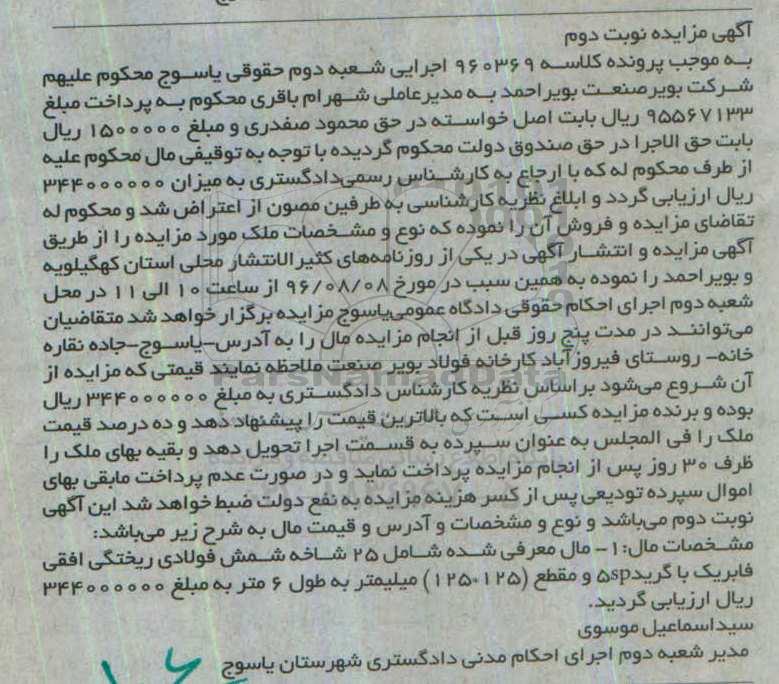 آگهی مزایده نوبت دوم
به موجب پرونده کلاسه ۹۶۰۳۶۹ اجرایی شعبه دوم حقوقی یاسوج محکوم علیهم
شرکت بویرصنعت بویراحمد به مدیرعاملی شهرام باقری محکوم به پرداخت مبلغ
۹۵۵۶۷۱۳۳ ریال بابت اصل خواسته در حق محمود صفدری و مبلغ ۱۵۰۰۰۰۰ ریال
بابت حق الاجرا در حق صندوق دولت محکوم گردیده با توجه به توقیفی مال محکوم علیه
از طرف محکوم له که با ارجاع به کارشناس رسمی‌دادگستری به میزان ۳۴۴۰۰۰۰۰۰
ریال ارزیابی گردد و ابلاغ نظریه کارشناسی به طرفین مصون از اعتراض شد و محکوم له
تقاضای مزایده و فروش آن را نموده که نوع و مشخصات ملک مورد مزایده را از طریق
آگهی مزایده و انتشار آگهی در یکی از روزنامه‌های کثیرالانتشار محلی استان کهگیلویه
و بویراحمد را نموده به همین سبب در مورخ ۹۶/۰۸/۰۸ از ساعت ۱۰ الی ۱۱ در محل
شعبه دوم اجرای احکام حقوقی دادگاه عمومی‌یاسوج مزایده برگزار خواهد شد متقاضیان
می‌توانند در مدت پنج روز قبل از انجام مزایده مال را به آدرس-یاسوج-جاده نقاره
خانه- روستای فیروزآباد کارخانه فولاد بویر صنعت ملاحظه نمایند قیمتی که مزایده از
آن شروع می‌شود براساس نظریه کارشناس دادگستری به مبلغ ۳۴۴۰۰۰۰۰۰ ریال
بوده و برنده مزایده کسی است که بالاترین قیمت را پیشنهاد دهد و ده درصد قیمت
ملک را فی المجلس به عنوان سپرده به قسمت اجرا تحویل دهد و بقیه بهای ملک را
ظرف ۳۰ روز پس از انجام مزایده پرداخت نماید و در صورت عدم پرداخت مابقی بهای
اموال سپرده تودیعی پس از کسر هزینه مزایده به نفع دولت ضبط خواهد شد این آگهی
نوبت دوم می‌باشد و نوع و مشخصات و آدرس و قیمت مال به شرح زیر می‌باشد:
مشخصات مال: ۱- مال معرفی شده شامل ۲۵ شاخه شمش فولادی ریختگی افقی
فابریک با گرید۵sp و مقطع (۱۲۵*۱۲۵) میلیمتر به طول ۶ متر به مبلغ ۳۴۴۰۰۰۰۰۰
ریال ارزیابی گردید.
سیداسماعیل موسوی
مدیر شعبه دوم اجرای احکام مدنی دادگستری شهرستان یاسوج
ParsNamadData